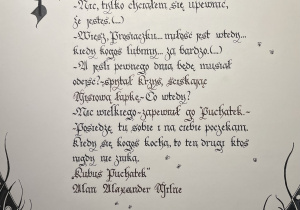 -Nic, tylko chciałem się upewnić,
że jesteś.(...)
-Wiesz, Prosiaczku... miłość jest wtedy...
kiedy kogoś lubimy... za bardzo.(...)
-A jeśli pewnego dnia będę musiał
odejść?-spytał Krzyś, ściskając
Misiową łapkę.-Co wtedy?
-Nic wielkiego-zapewnił go Puchatek.-
-Posiedzę tu sobie i na ciebie poczekam.
Kiedy się kogoś kocha, to ten drugi ktoś
nigdy nie znika.
„Kubuś Puchatek"
Alan Alexander Milne